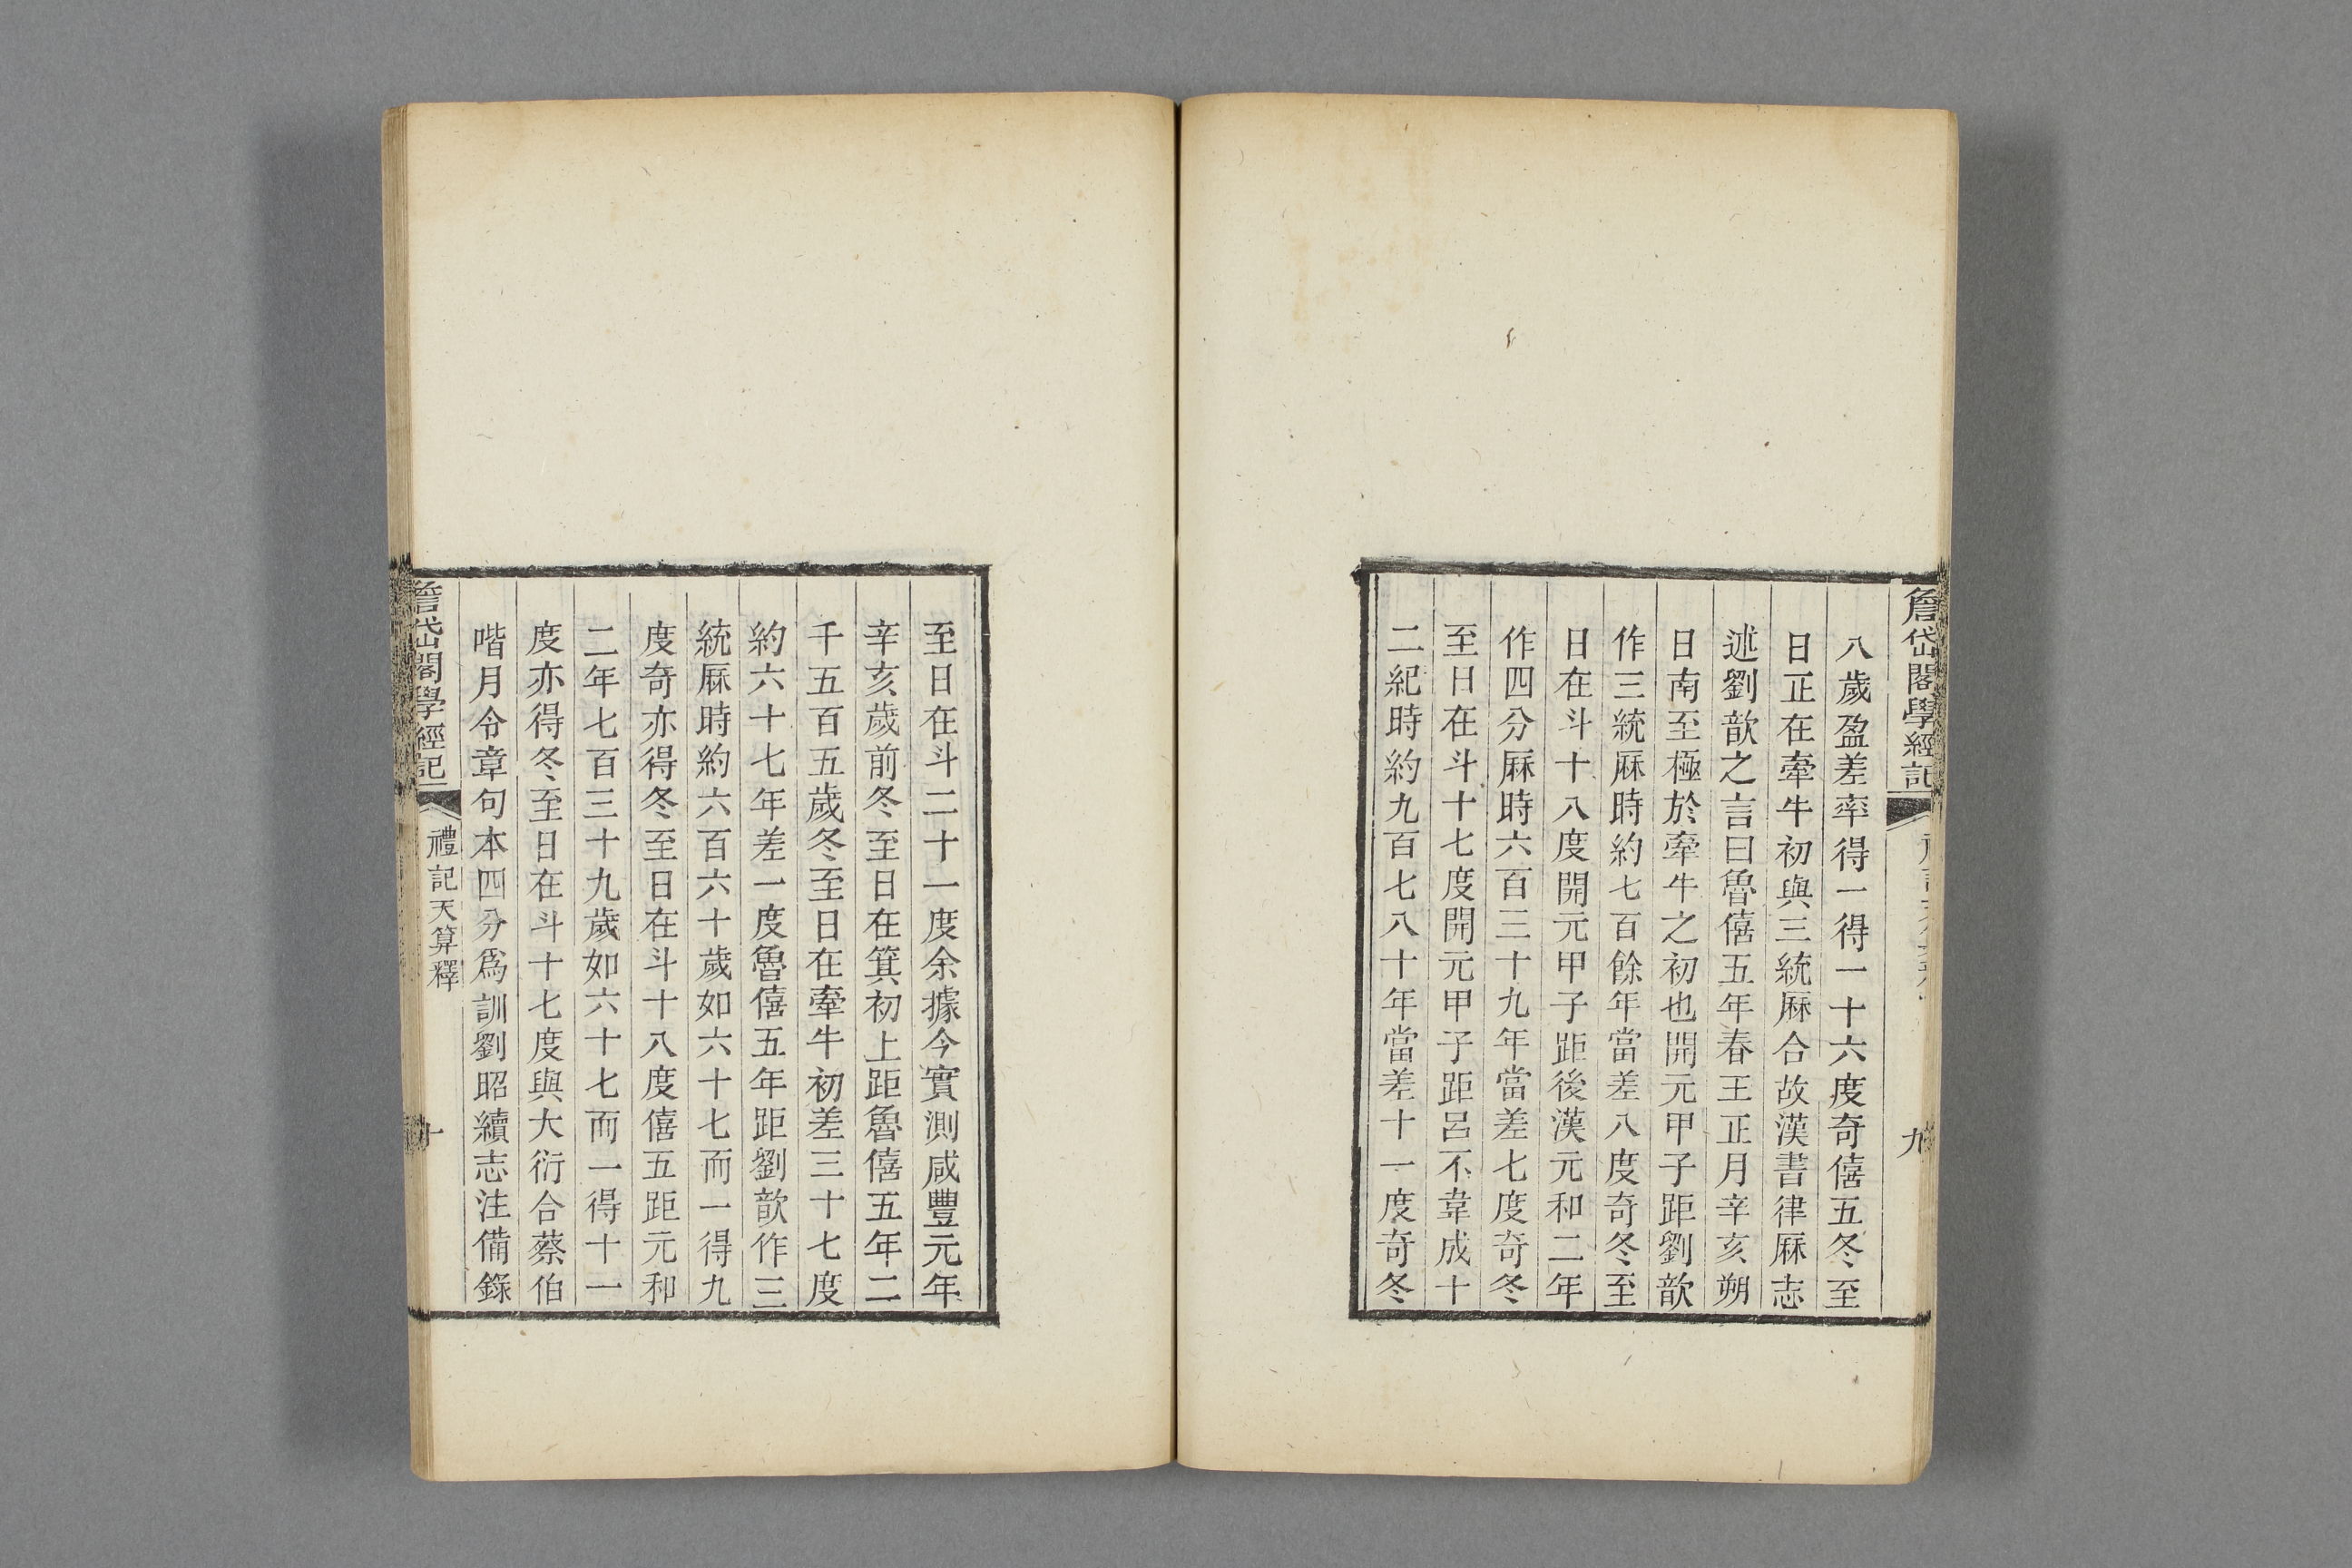 詹岱閣學經記
九
八歲盈差率得一得一十六度奇僖五冬至
日正在牽牛初與三統厤合故漢書律厤志
述劉歆之言曰魯僖五年春王正月辛亥朔
日南至極於牽牛之初也開元甲子距劉歆
作三統厤時約七百餘年當差八度奇冬至
日在斗十八度開元甲子距後漢元和二年
作四分厤時六百三十九年當差七度奇冬
至日在斗十七度開元甲子距呂不韋成十
二紀時約九百七八十年當差十一度奇冬
至日在斗二十一度余據今實測咸豐元年
辛亥歲前冬至日在箕初上距魯僖五年二
千五百五歲冬至日在牽牛初差三十七度
約六十七年差一度魯僖五年距劉歆作三
統厤時約六百六十歲如六十七而一得九
度奇亦得冬至日在斗十八度僖五距元和
二年七百三十九歲如六十七而一得十一
度亦得冬至日在斗十七度與大衍合蔡伯
喈月令章句本四分爲訓劉昭續志注備錄
詹岱閣學經記
禮記天算釋
十